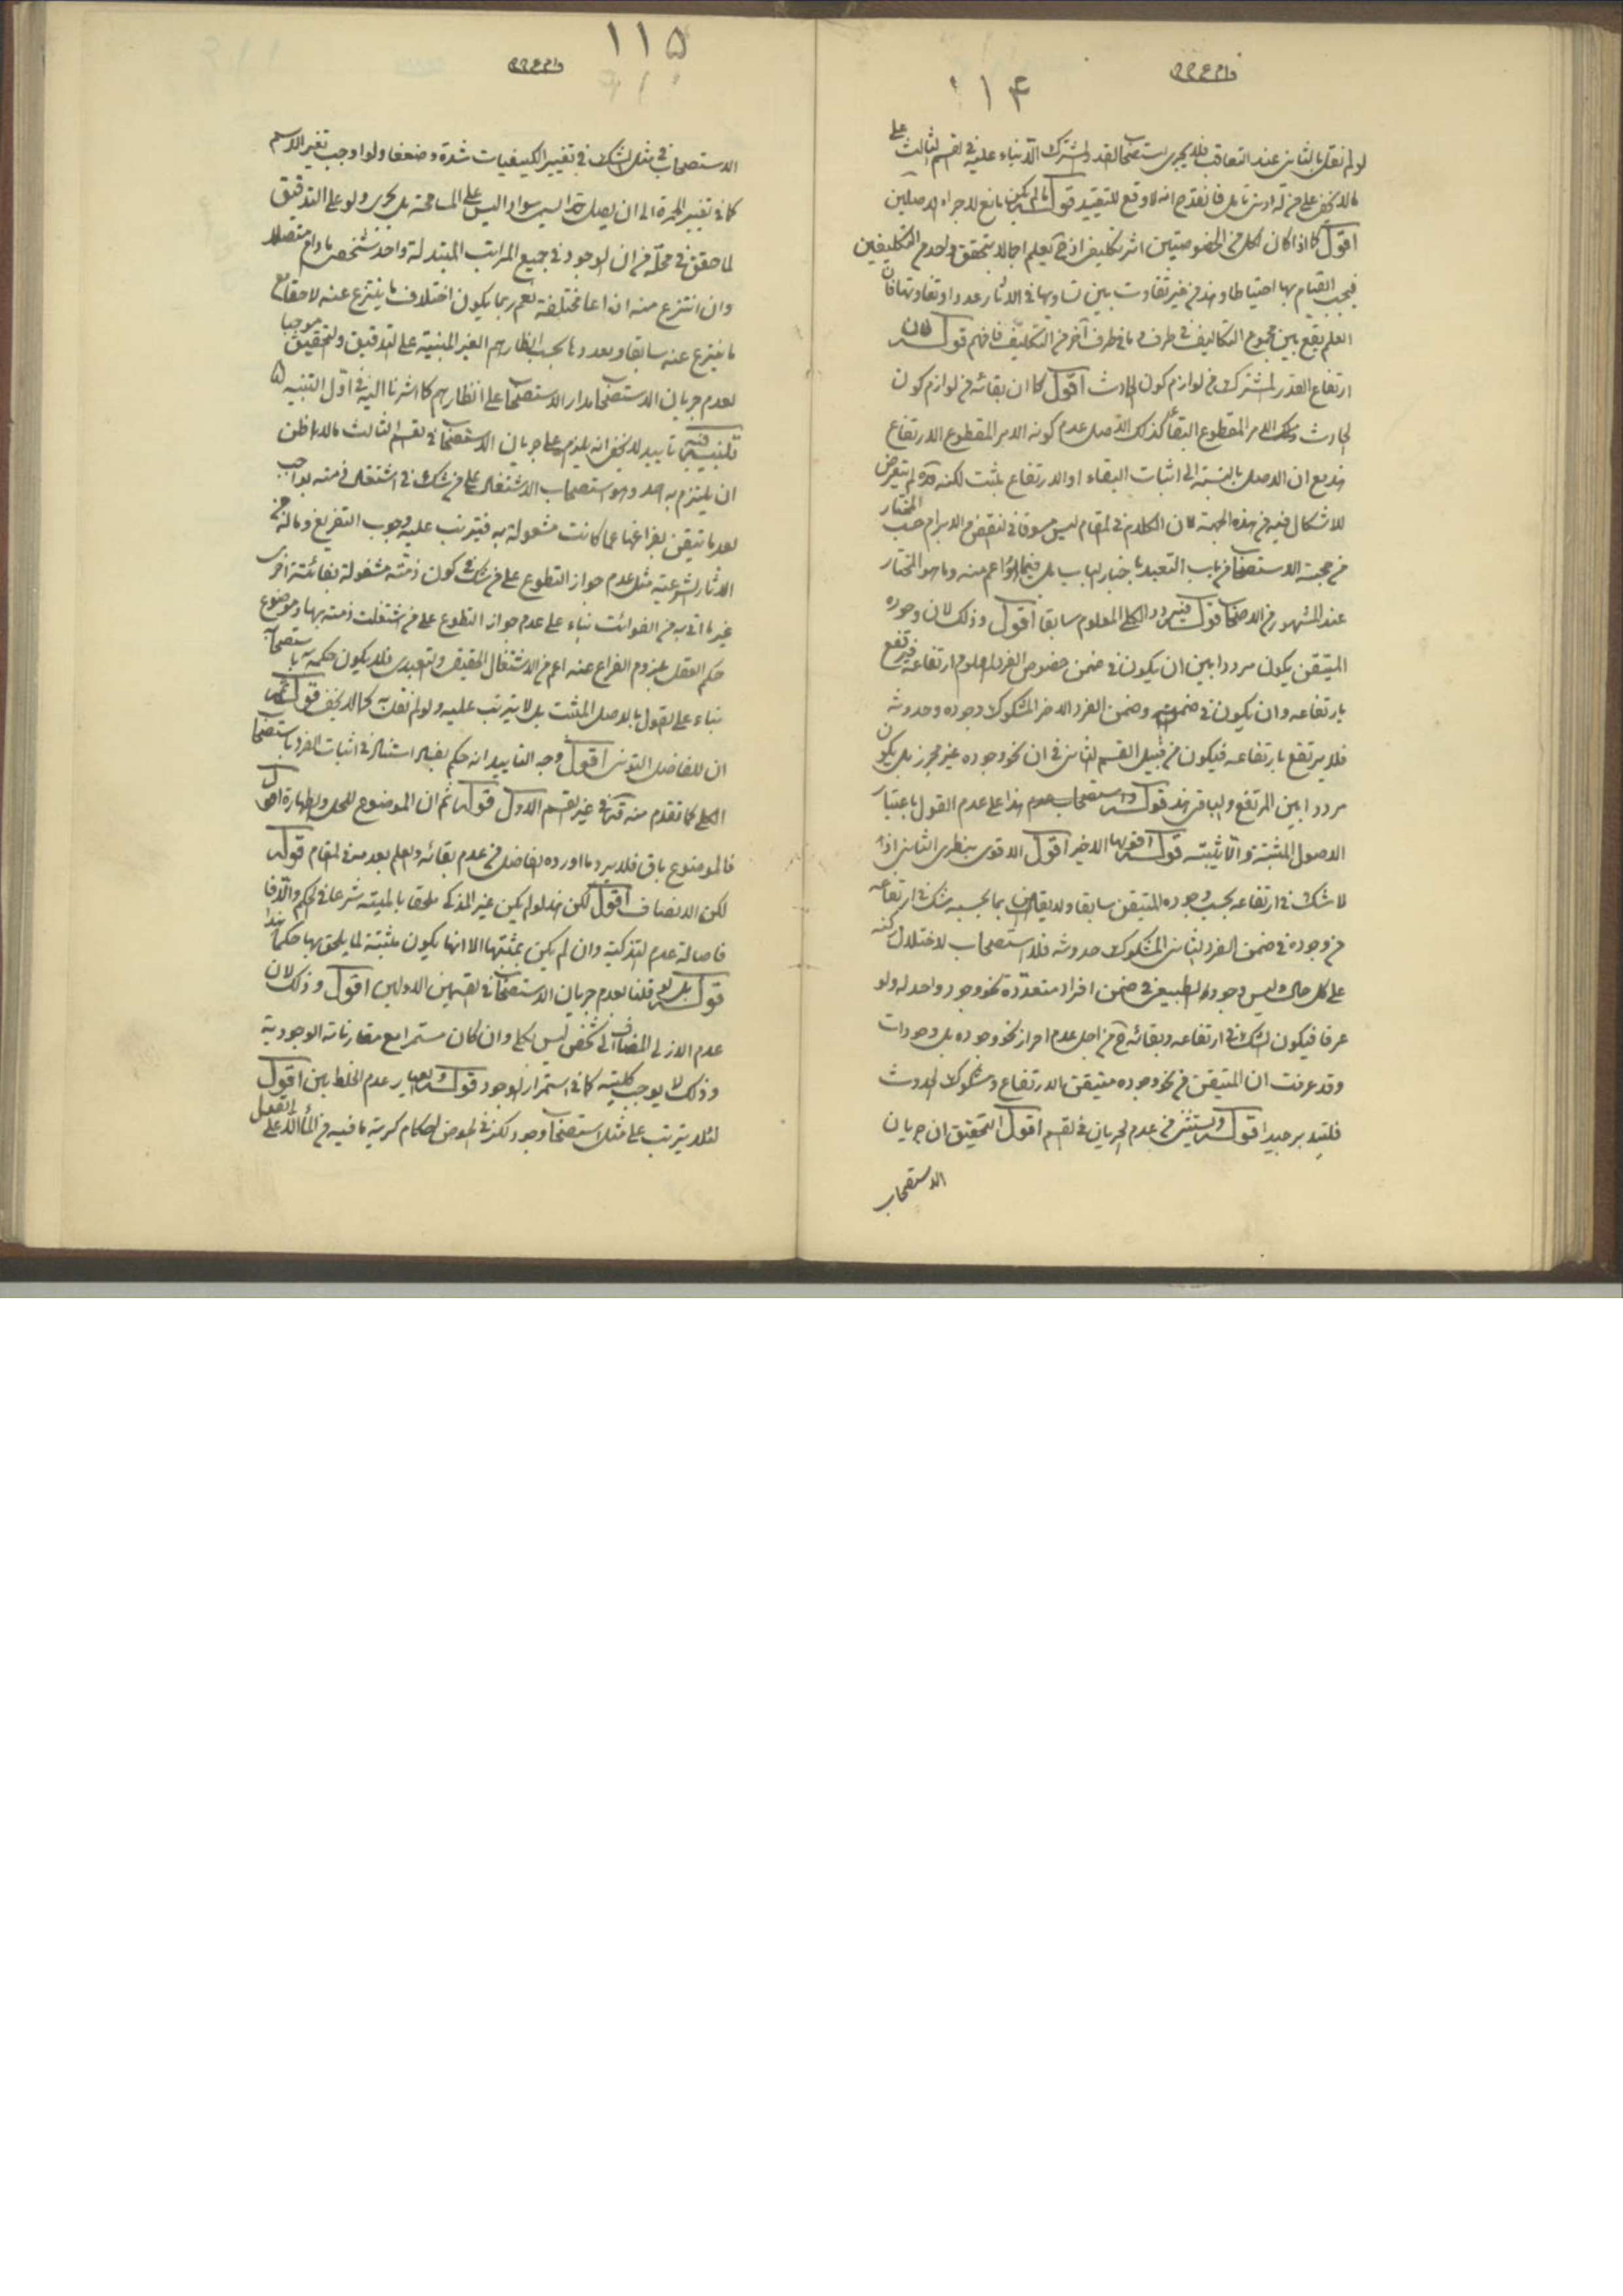 ١١۴
لو لم نقل بالثانى عند التعاقب فلا يجرى استصحاب القدر المشترك الا بناء عليه فى القسم الثالث على
ما لا يخفى على من له ادنى تامل فانقدح انه لا وقع للتقييد قوله ما لم يكن مانع للاجراء الاصلين
اقول كما اذا كان لكل من الخصوصيتين اثر تكليف اذ ح يعلم اجمالا بتحقق واحد من التكليفين
فيجب القيام بهما احتياطا وهذا من غير تفاوت بين تساويهما فى الاثار عددا وتفاوتهما فان
العلم يقع بين مجموع التكاليف فى طرف وما فى طرف آخر من التكليف فافهم قوله لان
ارتفاع القدر المشترك من لوازم كون الحادث اقول كما ان بقائه من لوازم كون
الحادث ذلك الامر المقطوع البقاء كذلك الاصل عدم كونه الامر المقطوع الارتفاع
هذا مع ان الاصل بالنسبة الى اثبات البقاء او الارتفاع مثبت لكنه قده لم يتعرض
للاشكال فيه من هذه الجهة لان الكلام فى المقام ليس مسوقا فى النقض والابرام حسب المختار
من حجية الاستصحاب من باب التعبد باخبار الباب بل فيما اعم منه وما هو المختار
عند المشهور من الاصحاب قوله فيتردد الكلى المعلوم سابقا اقول وذلك لان وجوده
المتيقن يكون مرددا بين ان يكون فى ضمن خصوص الفرد المعلوم ارتفاعه فيرتفع
بارتفاعه وان يكون فى ضمنه وضمن الفرد الاخر المشكوك وجوده وحدوثه
فلا يرتفع بارتفاعه فيكون من قبيل القسم الثانى فى ان نحو وجوده غير محرز بل يكون
مرددا بين المرتفع والباقى هذا قوله واستصحاب عدم هذا على عدم القول باعتبار
الاصول المثبتة والا يثبته قوله اقويها الاخير اقول الاقوى بنظرى الثانى اذا
لا شك فى ارتفاعه بحسب وجوده المتيقن سابقا ولا يقين بما بحسبه شك فى ارتفاعه
من وجوده فى ضمن الفرد الثانى المشكوك حدوثه فلا استصحاب لاختلال ركنه
على كل حال وليس وجود الطبيعى فى ضمن افراد متعددة نحو وجود واحد له ولو
عرفا فيكون الشك فى ارتفاعه وبقائه ح من اجل عدم احراز نحو وجوده بل وجودات
وقد عرفت ان المتيقن من نحو وجوده متيقن الارتفاع ومشكوك الحدوث
فلتدبر جيدا قوله ويستثنى من عدم الجريان فى القسم اقول التحقيق ان جريان
الاستصحاب
١١۵
الاستصحاب فى مثل الشك فى تغيير الكيفيات شدة وضعفا ولو اوجب تغير الاسم
كما فى تغيير الحمرة الى ان يصل حد اليسير سوادا ليس على المسامحة بل يجرى ولو على التدقيق
لما حقق فى محله من ان الوجود فى جميع المراتب المتبدلة واحد شخصى ما دام متصلا
وان انتزع منه انواعا مختلفة نعم ربما يكون اختلاف ما ينتزع عنه لاحقا مع
ما ينتزع عنه سابقا وبعد وما بحسب انظارهم الغير المبنية على التدقيق والتحقيق موجبا
لعدم جريان الاستصحاب مدار الاستصحاب على انظارهم كما اشرنا اليه فى اول التنبيه
تنبيه فيه تاييد لا يخفى انه يلزم على جريان الاستصحاب فى القسم الثالث ما لا اظن
ان يلتزم به احد وهو استصحاب الاشتغال على من شك فى اشتغال ذمته بواجب
بعد ما تيقن بفراغها عما كانت مشغولة به فيترتب عليه وجوب التفريغ وماله من
الاثار الشرعية مثل عدم جواز التطوع على من شك فى كون ذمته مشغولة بفائتة اخرى
غير ما اتى به من الفوائت بناء على عدم جواز التطوع على من اشتغلت ذمته بها وموضوع
حكم العقل بلزوم الفراغ عنه اعم من الاشتغال الحقيقى والتعبدى فلا يكون حكمه به باستصحابه
بناء على القول بالاصل المثبت بل لا يترتب عليه ولو لم نقل به كما لا يخفى قوله ثم
ان للفاضل التونى اقول وجه التاييد انه حكم بفساد استناد فى اثبات الفرد باستصحاب
الكلى كما تقدم منه قده فى غير القسم الاول قوله ثم ان الموضوع للحل والطهارة اقول
فالموضوع باق فلا يرد ما اورده الفاضل من عدم بقائه ولعلم بعد من المقام قوله
لكن الانصاف اقول لكن هذا لو لم يكن غير المذكى ملحقا بالميتة شرعا فى الحكم والا فا
فاصالة عدم التذكية وان لم يكن بمثبتها الا انها يكون مثبتة لما يلحق بها حكما هذا
قوله بل لو قلنا بعدم جريان الاستصحاب فى القسمين الاولين اقول وذلك لان
عدم الازلى المضاف الى شخص ليس بكلى وان كان مستمرا مع مقارناته الوجودية
وذلك لا يوجب كليته كما فى استمرار الوجود قوله والمعيار عدم الخلط بين اقول
لئلا يترتب على مثل استصحاب وجود لكر فى الحوض احكام كرية ما فيه من الماء الا على القول